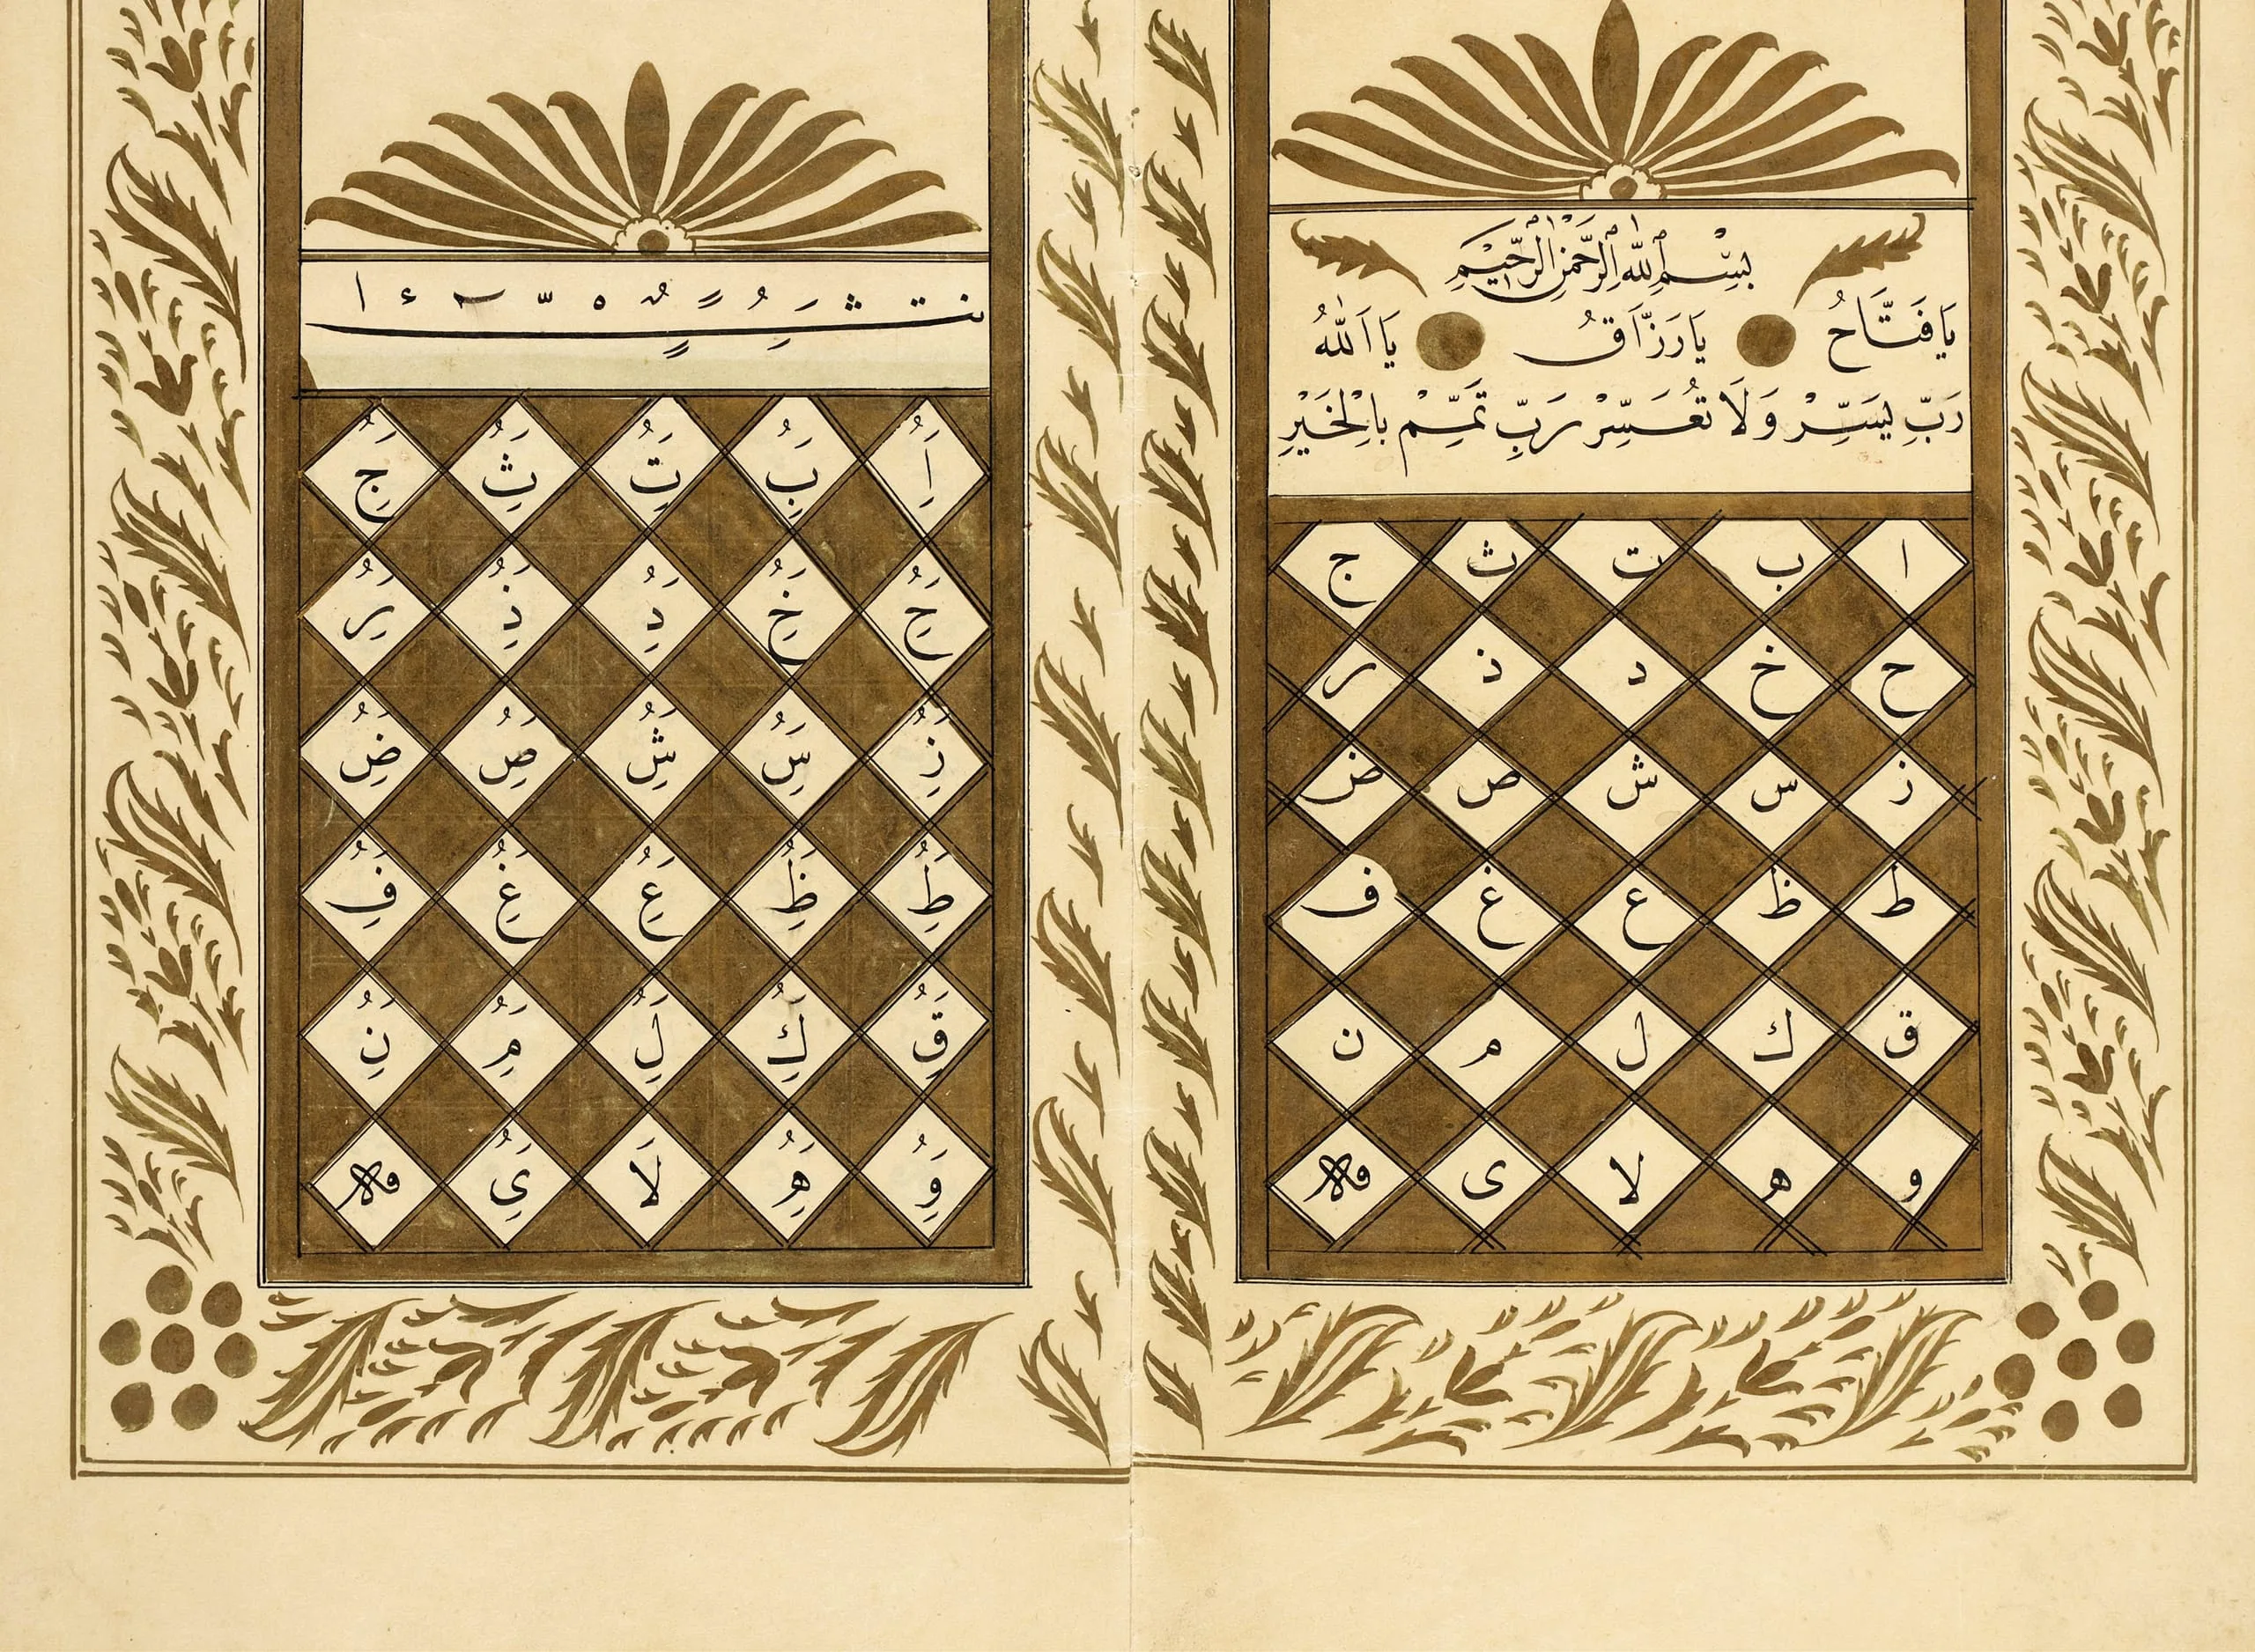 بِسْمِ اللّٰهِ الرَّحْمٰنِ الرَّحِيْمِ
يَا فَتَّاحُ يَا رَزَّاقُ يَا اَللّٰهُ
رَبِّ يَسِّرْ وَلَا تُعَسِّرْ رَبِّ تَمِّمْ بِالْخَيْرِ
ا ب ت ث ج
ح خ د ذ ر
ز س ش ص ض
ط ظ ع غ ف
ق ك ل م ن
و ه لا ى
اَُِ بَُِ تَُِ ثَُِ جَُِ
حَُِ خَُِ دَُِ ذَُِ رَُِ
زَُِ سَُِ شَُِ صَُِ ضَُِ
طَُِ ظَُِ عَُِ غَُِ فَُِ
قَُِ كَُِ لَُِ مَُِ نَُِ
وَُِ هَُِ لَا ىَُِ